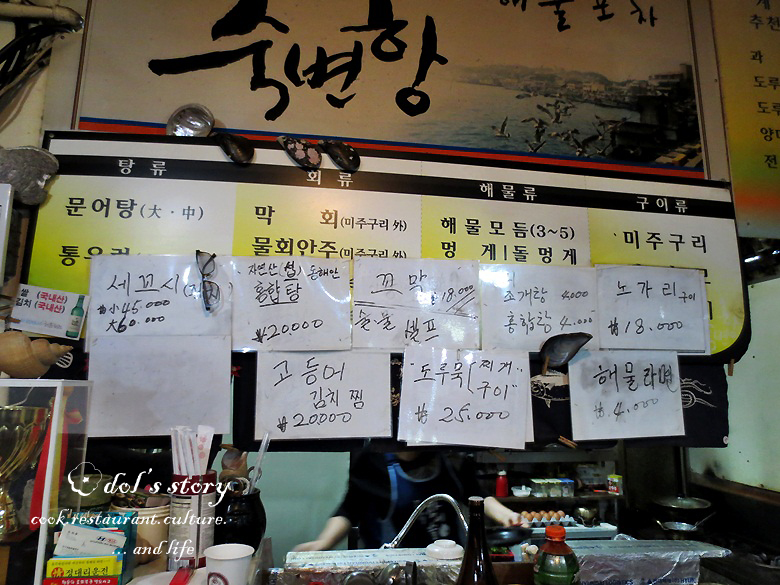 해물포차
죽변항
추천
과
도루
전
탕 류
회 류
해물류
구이류
문어탕(大·中)
막 회(미주구리 外)
물회안주(미주구리 外)
해물모듬(3~5)
멍 게 | 돌 멍게
미주구리
세꼬시
₩小45.000
大60.000
자연산 (섭) 동해안
홍합탕
₩20.000
꼬막
₩18.000
술·물 셀프
조개탕 4.000
홍합탕 4.000
노가리구이
₩18.000
쌀 (국내산)
김치(국내산)
고등어
김치찜
₩20000
"도루묵 (찌개..
구이"
₩25.000
해물라면
₩4.000
dol's story
cook.restaurant.culture.
... and life
경대리운전